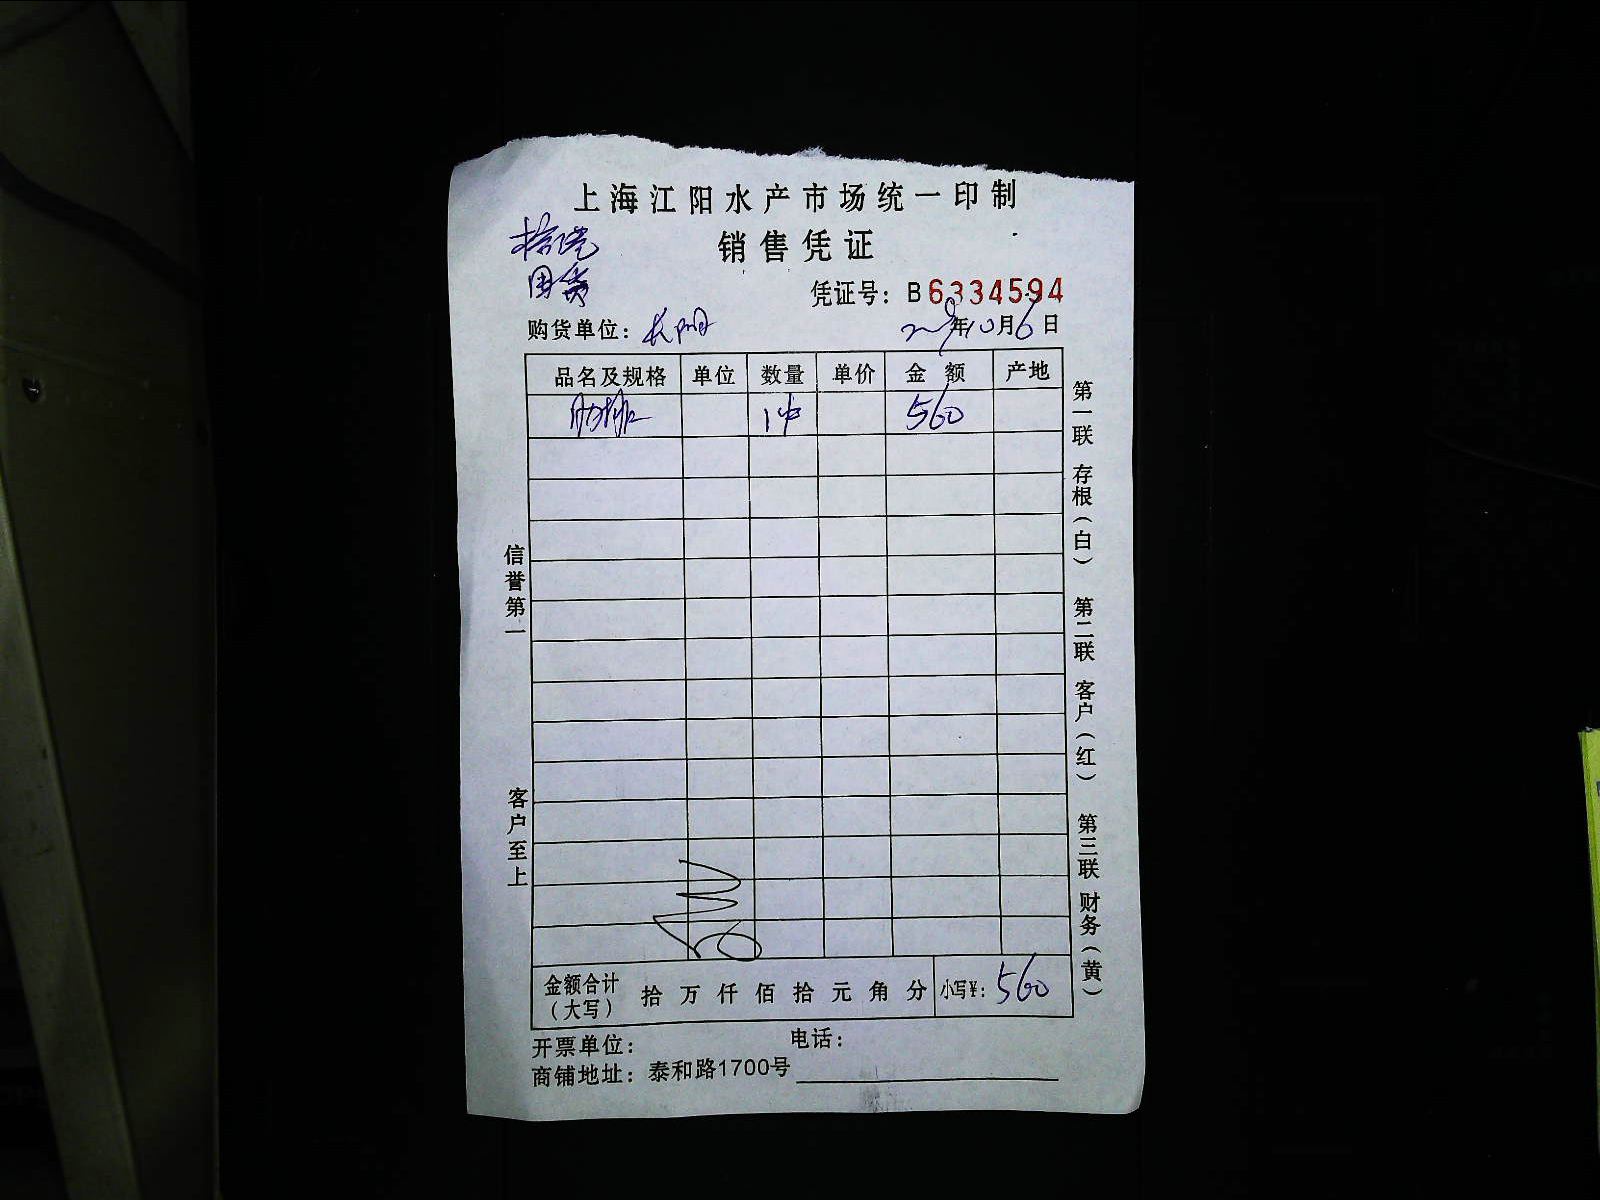 上海江阳水产市场统一印制
销售凭证
凭证号：B6334594
购货单位：长阳
年10月6日
品名及规格 单位 数量 单价 金额 产地
肋排 1件 560
信誉第一
客户至上
第一联 存根（白） 第二联 客户（红） 第三联 财务（黄）
金额合计（大写） 拾 万 仟 佰 拾 元 角 分 小写¥：560
开票单位： 电话：
商铺地址：泰和路1700号